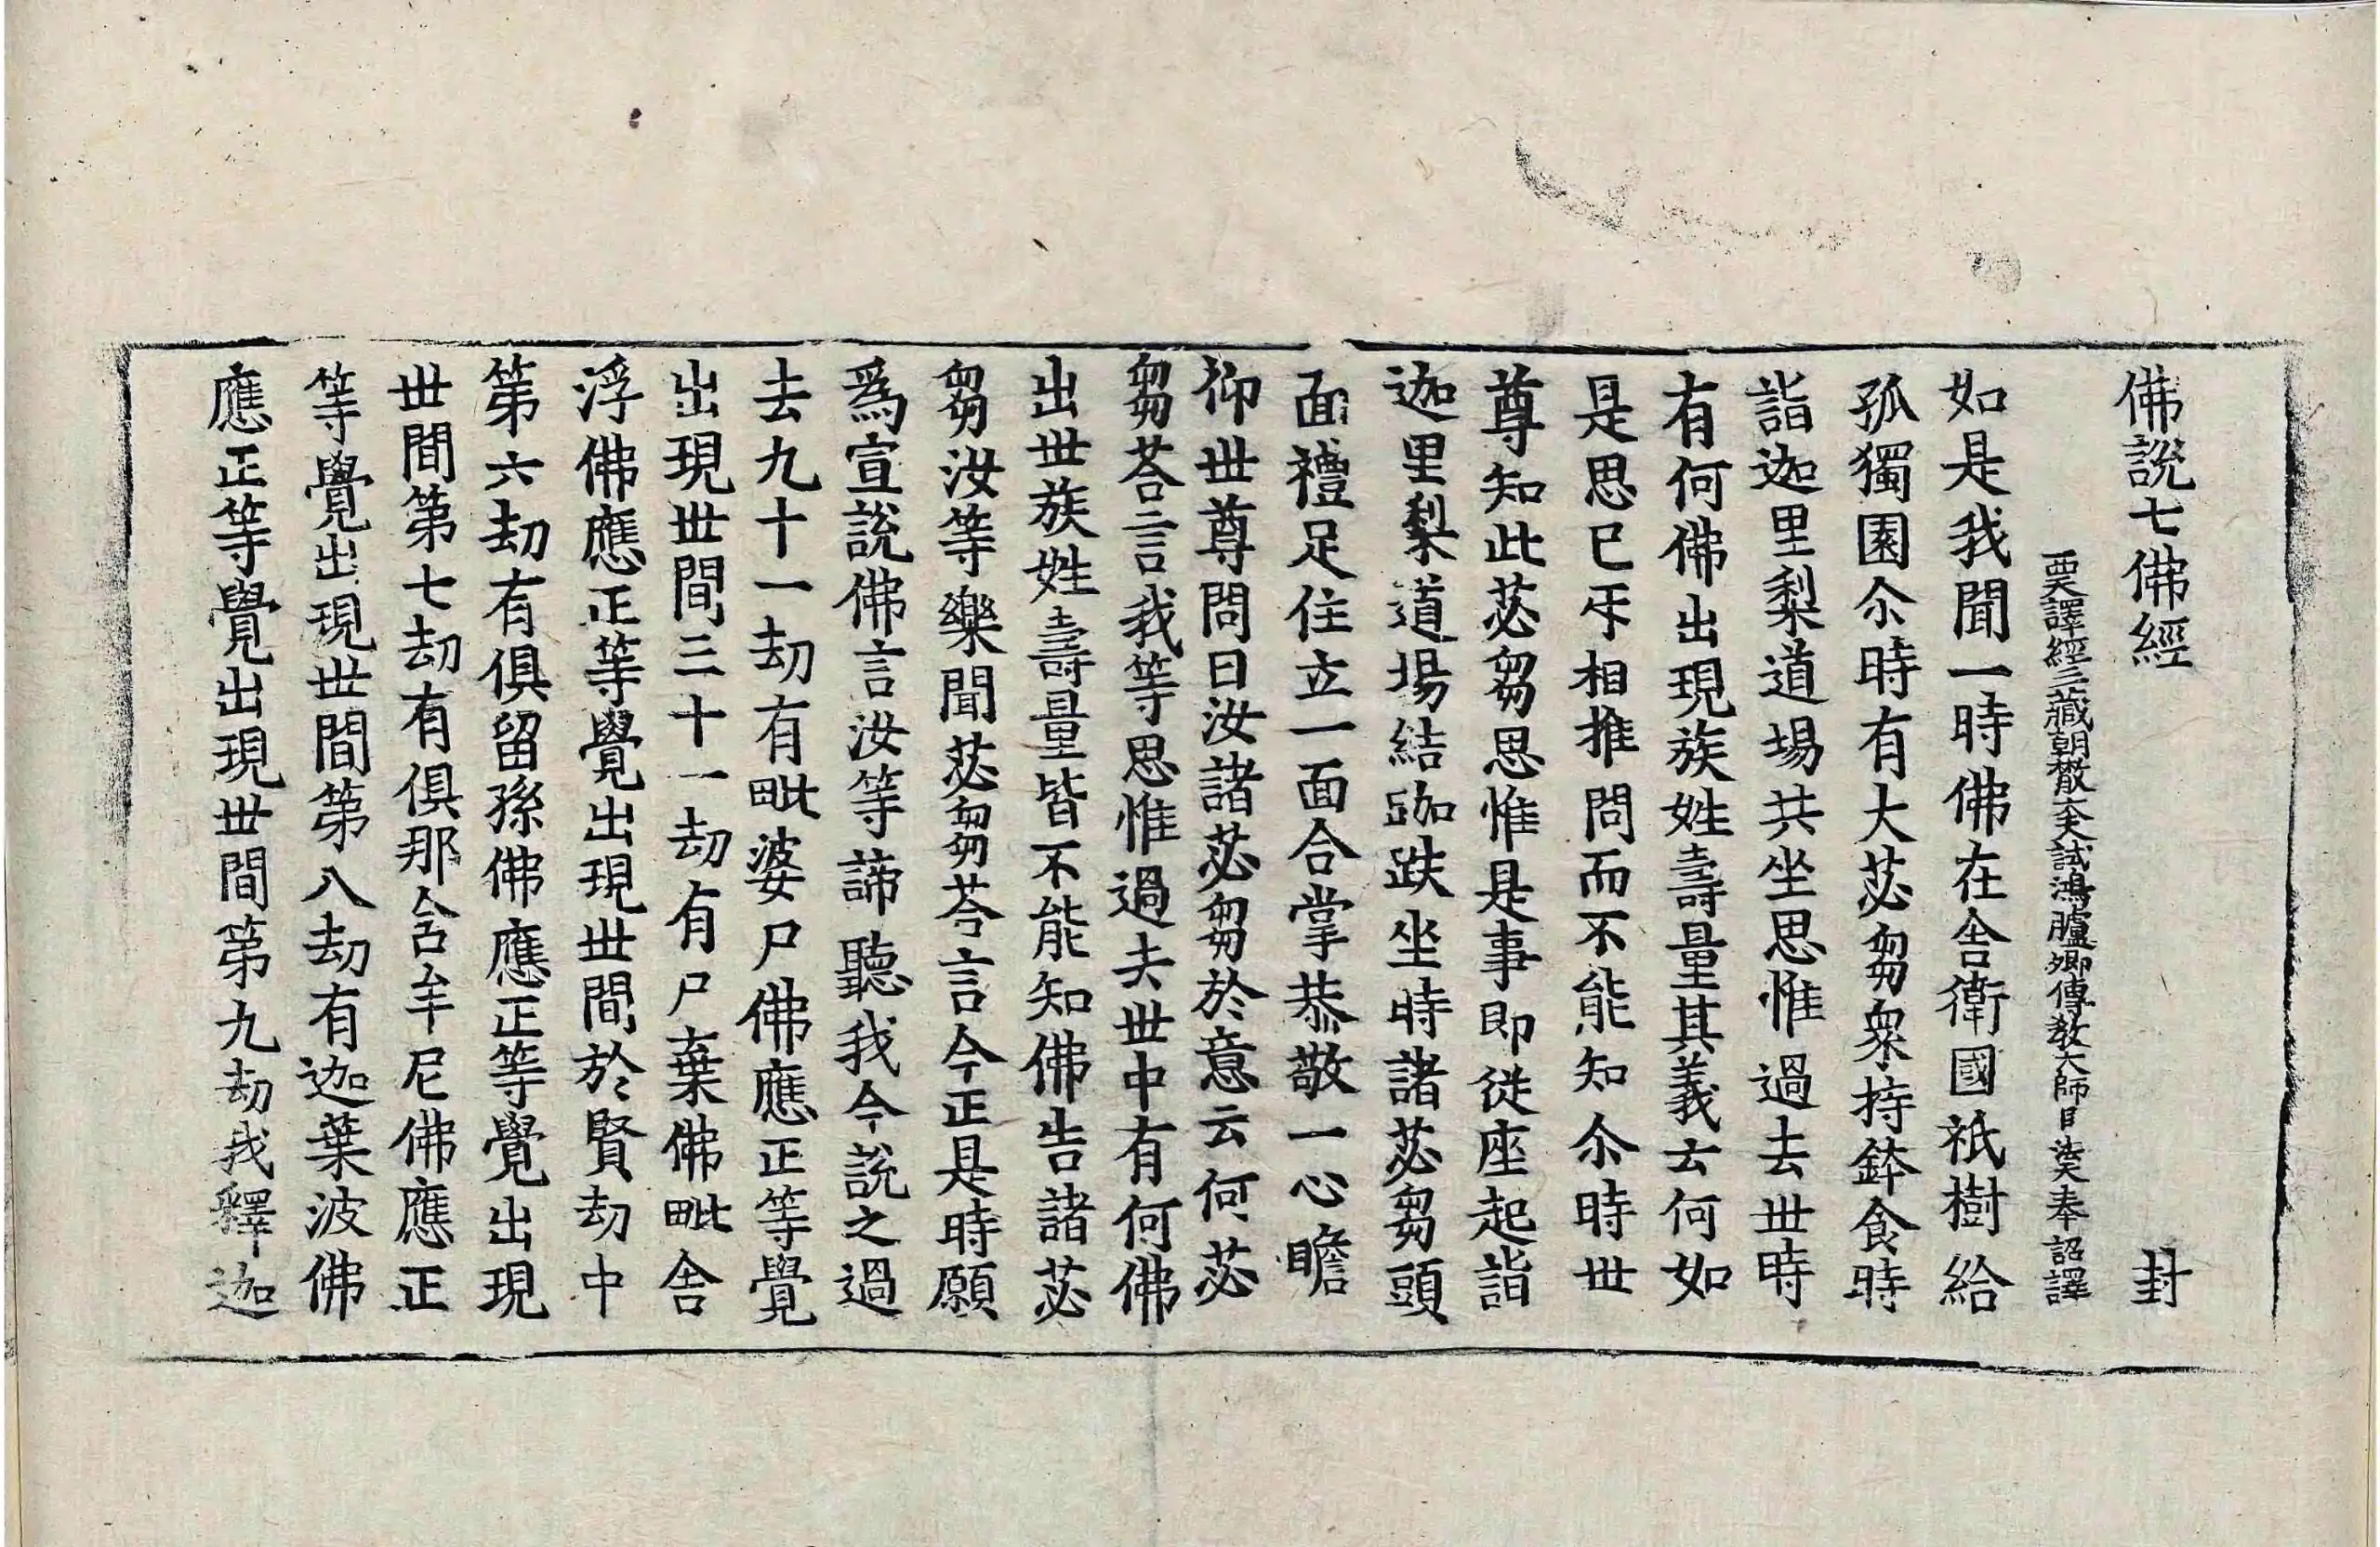 佛說七佛經 封
西天譯經三藏朝散大夫試鴻臚卿傳教大師臣法天奉 詔譯
如是我聞一時佛在舍衛國祇樹給
孤獨園尒時有大苾芻衆持鉢食時
詣迦里梨道場共坐思惟過去丗時
有何佛出現族姓壽量其義云何如
是思已㸦相推問而不能知尒時丗
尊知此苾芻思惟是事即從座起詣
迦里梨道場結跏趺坐時諸苾芻頭
面禮足住立一面合掌恭敬一心瞻
仰世尊問曰汝諸苾芻於意云何苾
芻荅言我等思惟過去丗中有何佛
出丗族姓壽量皆不能知佛告諸苾
芻汝等樂聞苾芻荅言今正是時願
爲宣說佛言汝等諦聽我今說之過
去九十一劫有毗婆尸佛應正等覺
出現丗間三十一劫有尸棄佛毗舍
浮佛應正等覺出現丗間於賢劫中
第六劫有俱留孫佛應正等覺出現
丗間第七劫有俱那含牟尼佛應正
等覺出現丗間第八劫有迦葉波佛
應正等覺出現丗間第九劫我釋迦